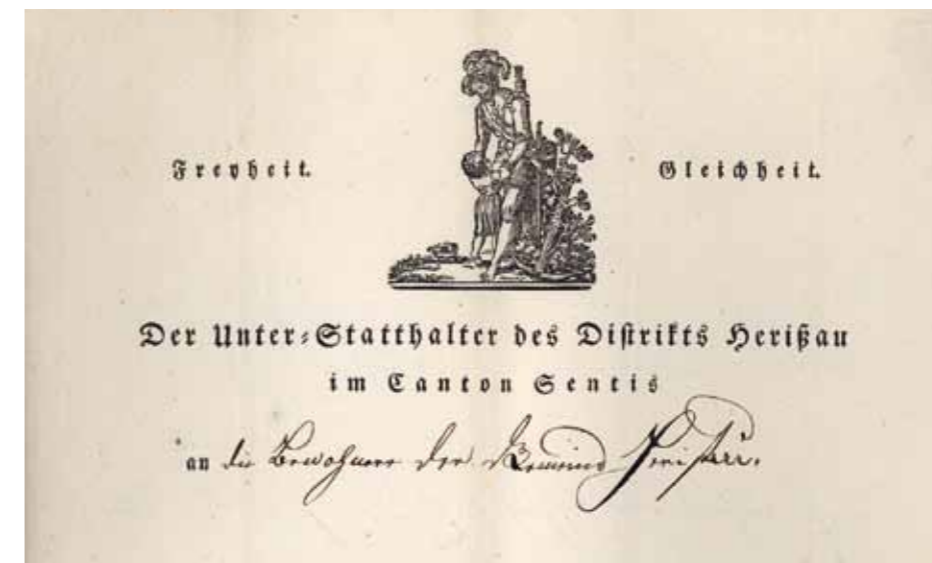 Freyheit. Gleichheit.
Der Unter-Statthalter des Distrikts Herißau
im Canton Sentis
an die Bewohner der Gemeind Herisau.